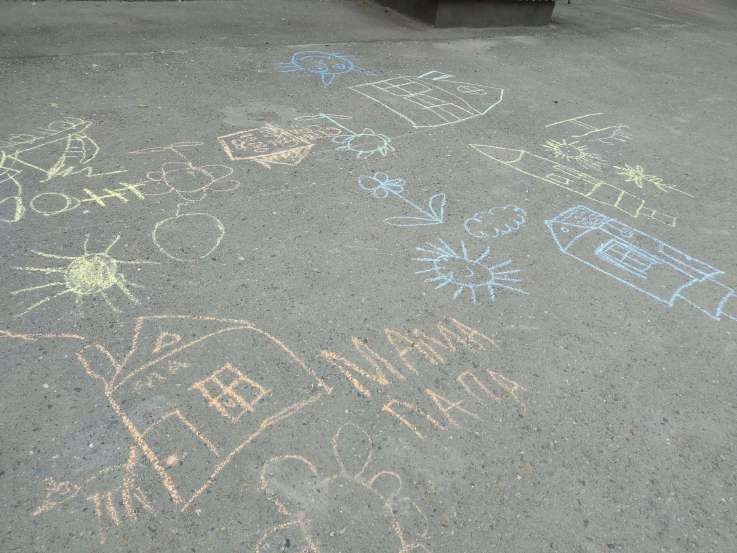 МАМА
ПАПА